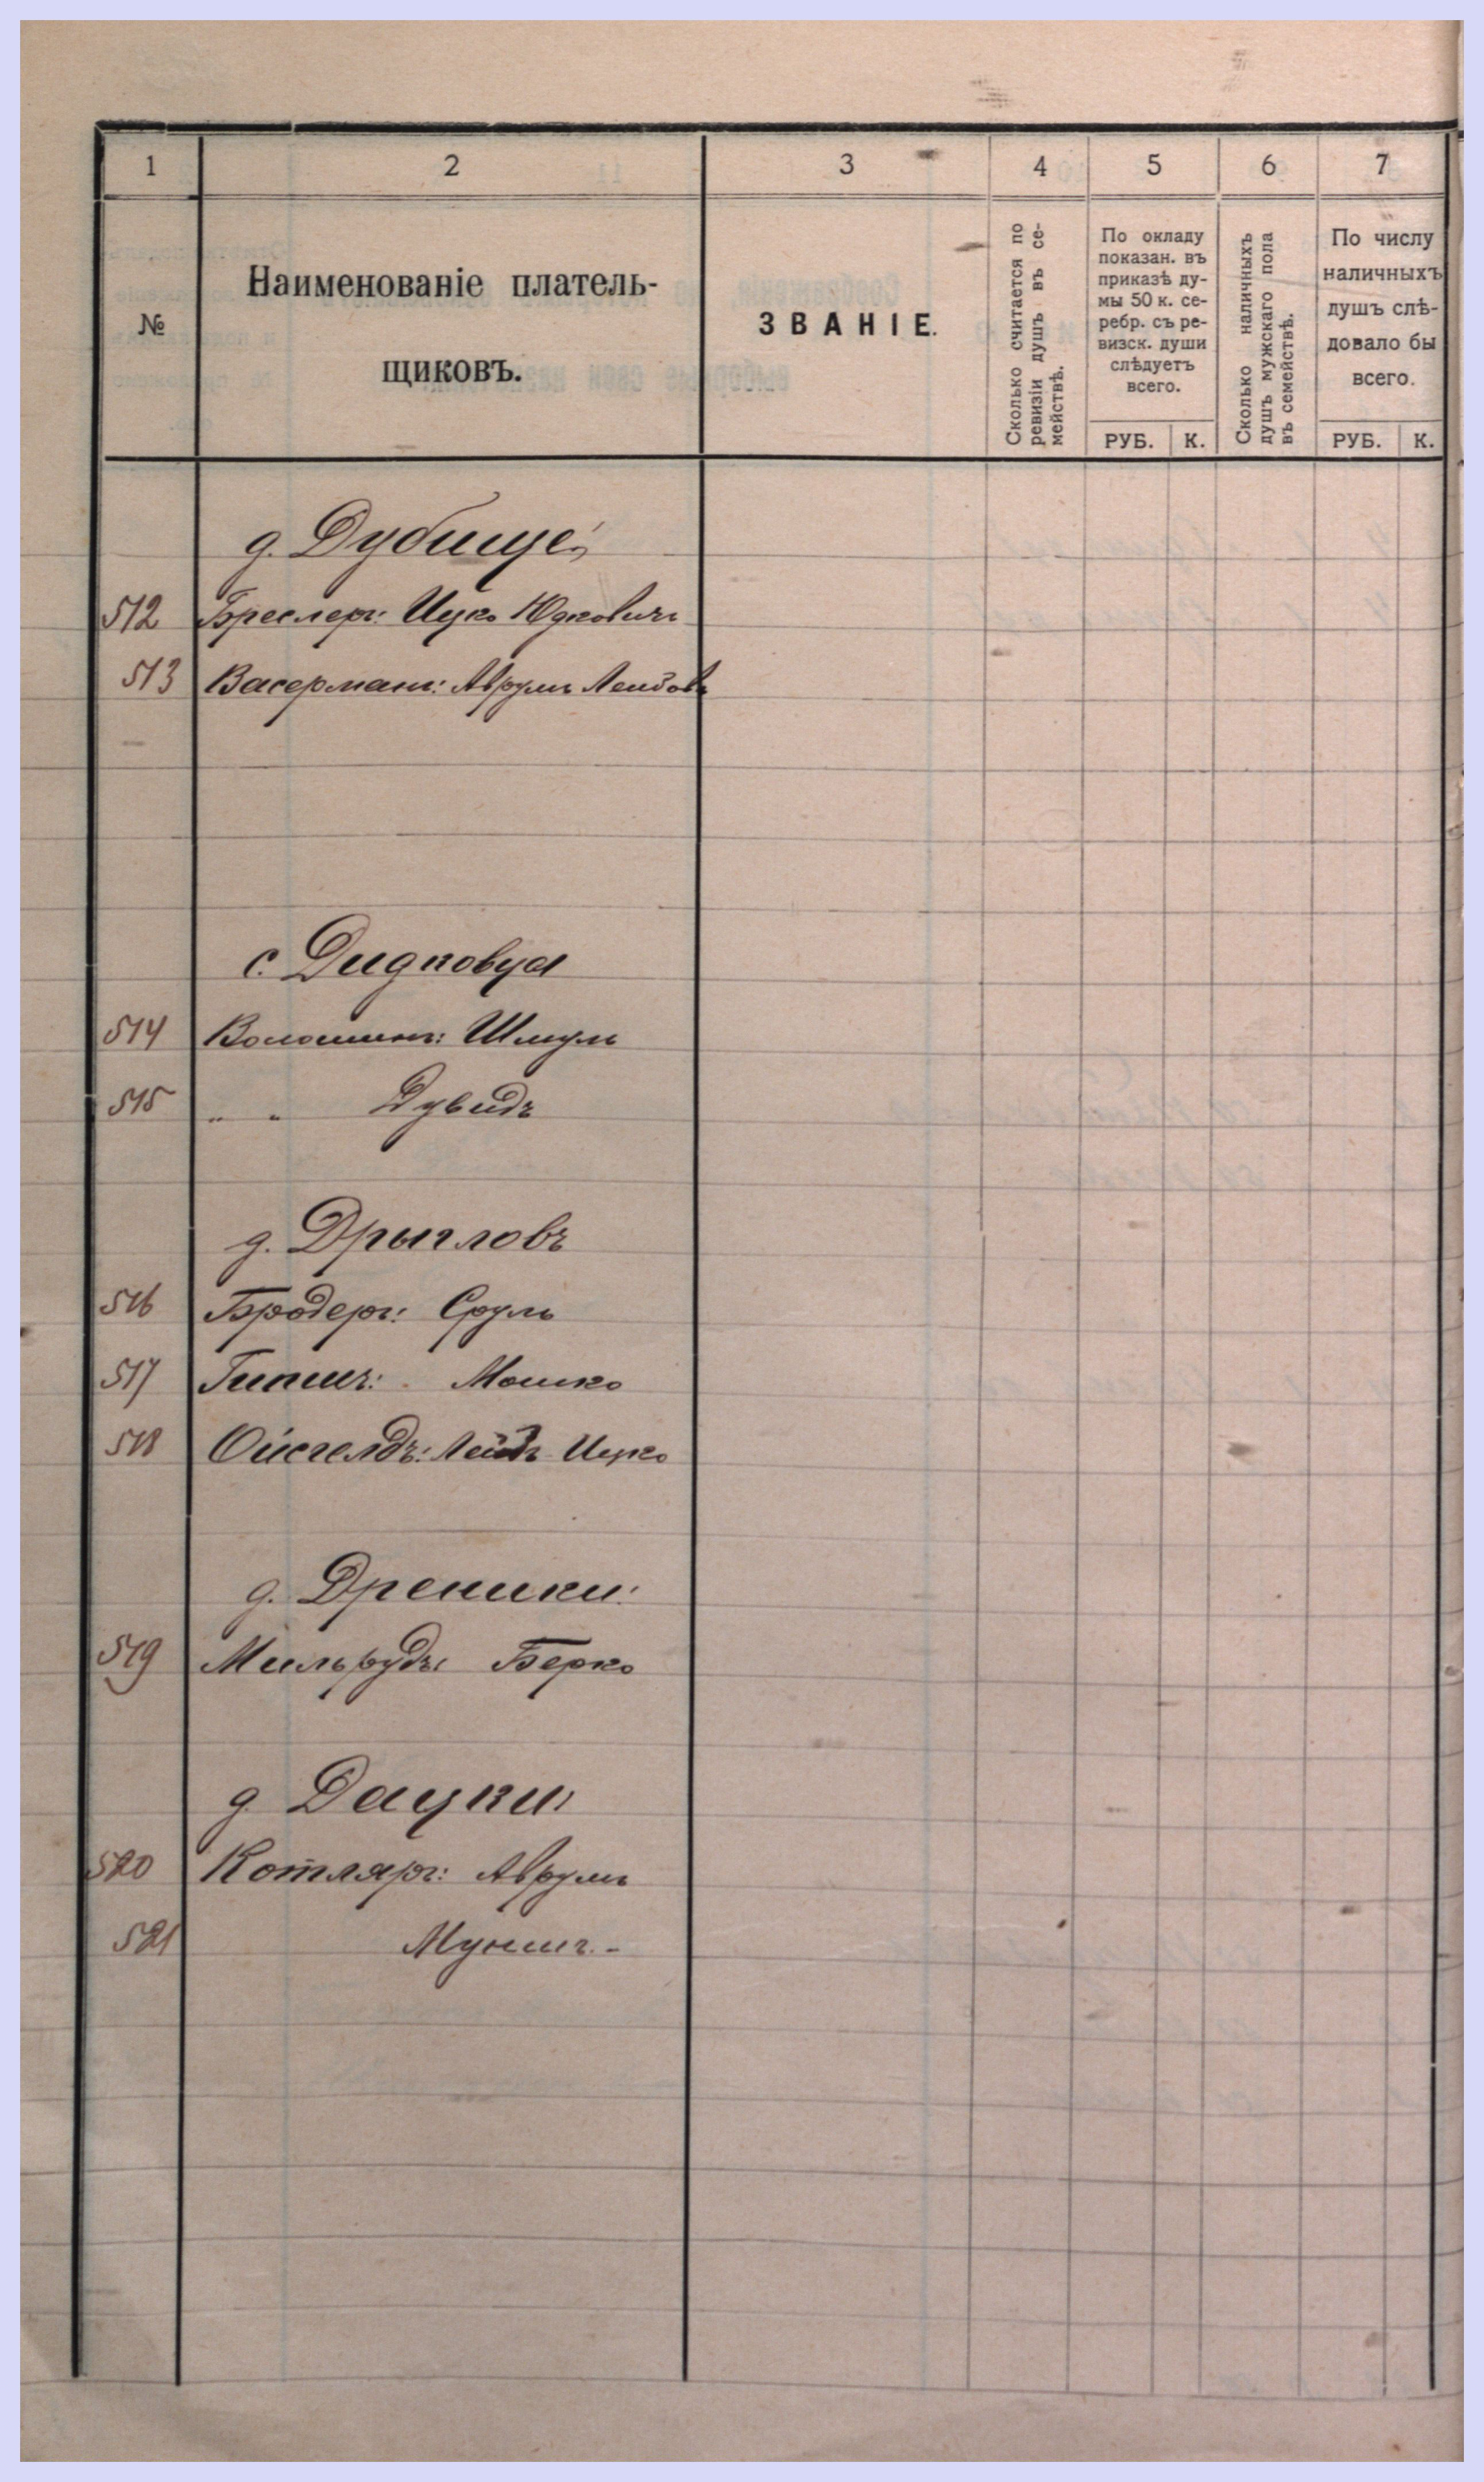 1 2 3 4 5 6 7
№
Наименованіе платель-
щиковъ.
ЗВАНІЕ.
Сколько считается по
ревизіи душъ въ се-
мействѣ.
По окладу
показан. въ
приказѣ ду-
мы 50 к. се-
ребр. съ ре-
визск. души
слѣдуетъ
всего.
РУБ. К.
Сколько наличныхъ
душъ мужскаго пола
въ семействѣ.
По числу
наличныхъ
душъ слѣ-
довало бы
всего.
РУБ. К.
д. Дубище
512 Бреслеръ: Ицко Юдковичъ
513 Васерманъ: Аврумъ Лейбовъ
с. Дидковцы
514 Волошинъ: Шмуль
515 " " Дувидъ
д. Дрыгловъ
516 Бродеръ: Сруль
517 Мошко
518 Ойсгелдъ: Ицко
д. Дреники:
519 Мильрудъ: Берко
д. Дацки:
520 Котляръ: Аврумъ
521 Мунишъ.-